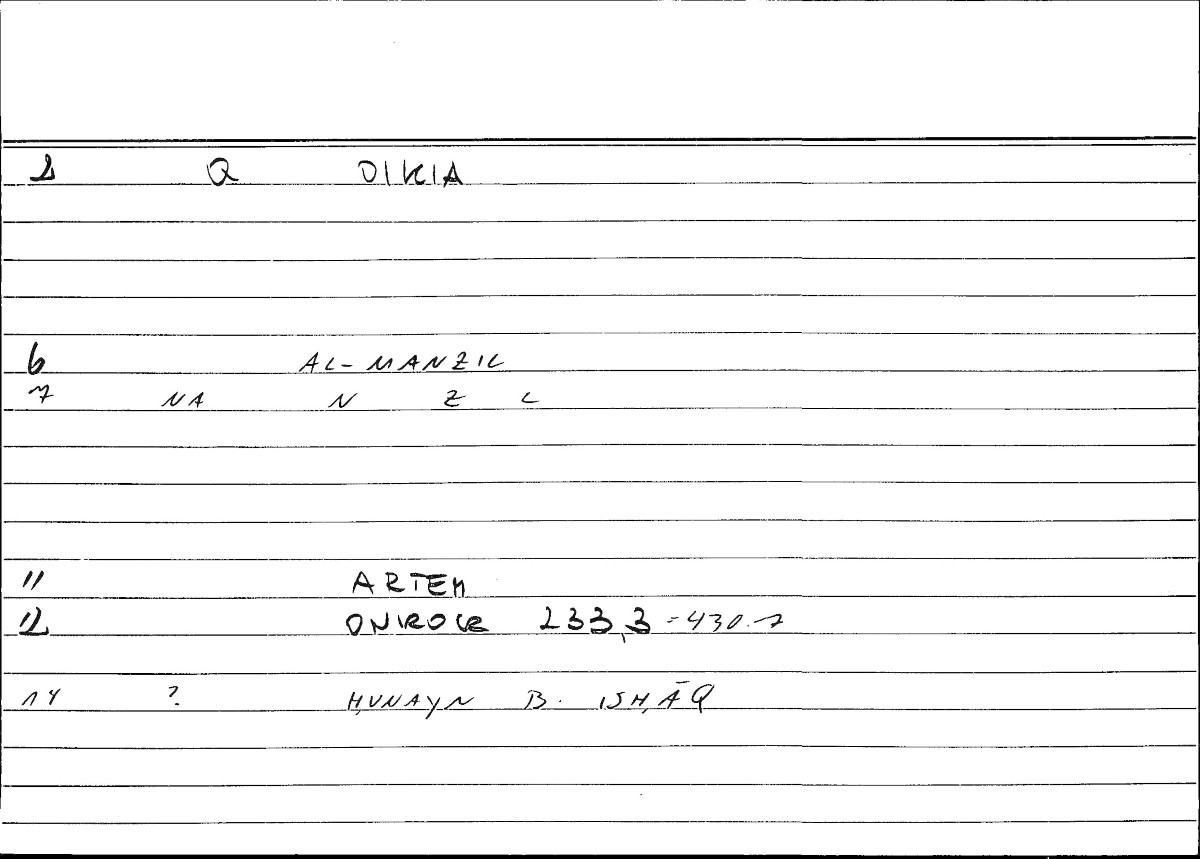 2 Q OIKIA
6 AL-MANZIL
7 NA N Z L
11 ARTEM
12 ONIROCR 233,3 = 430.7
14 ? ḤUNAYN B. ISḤĀQ